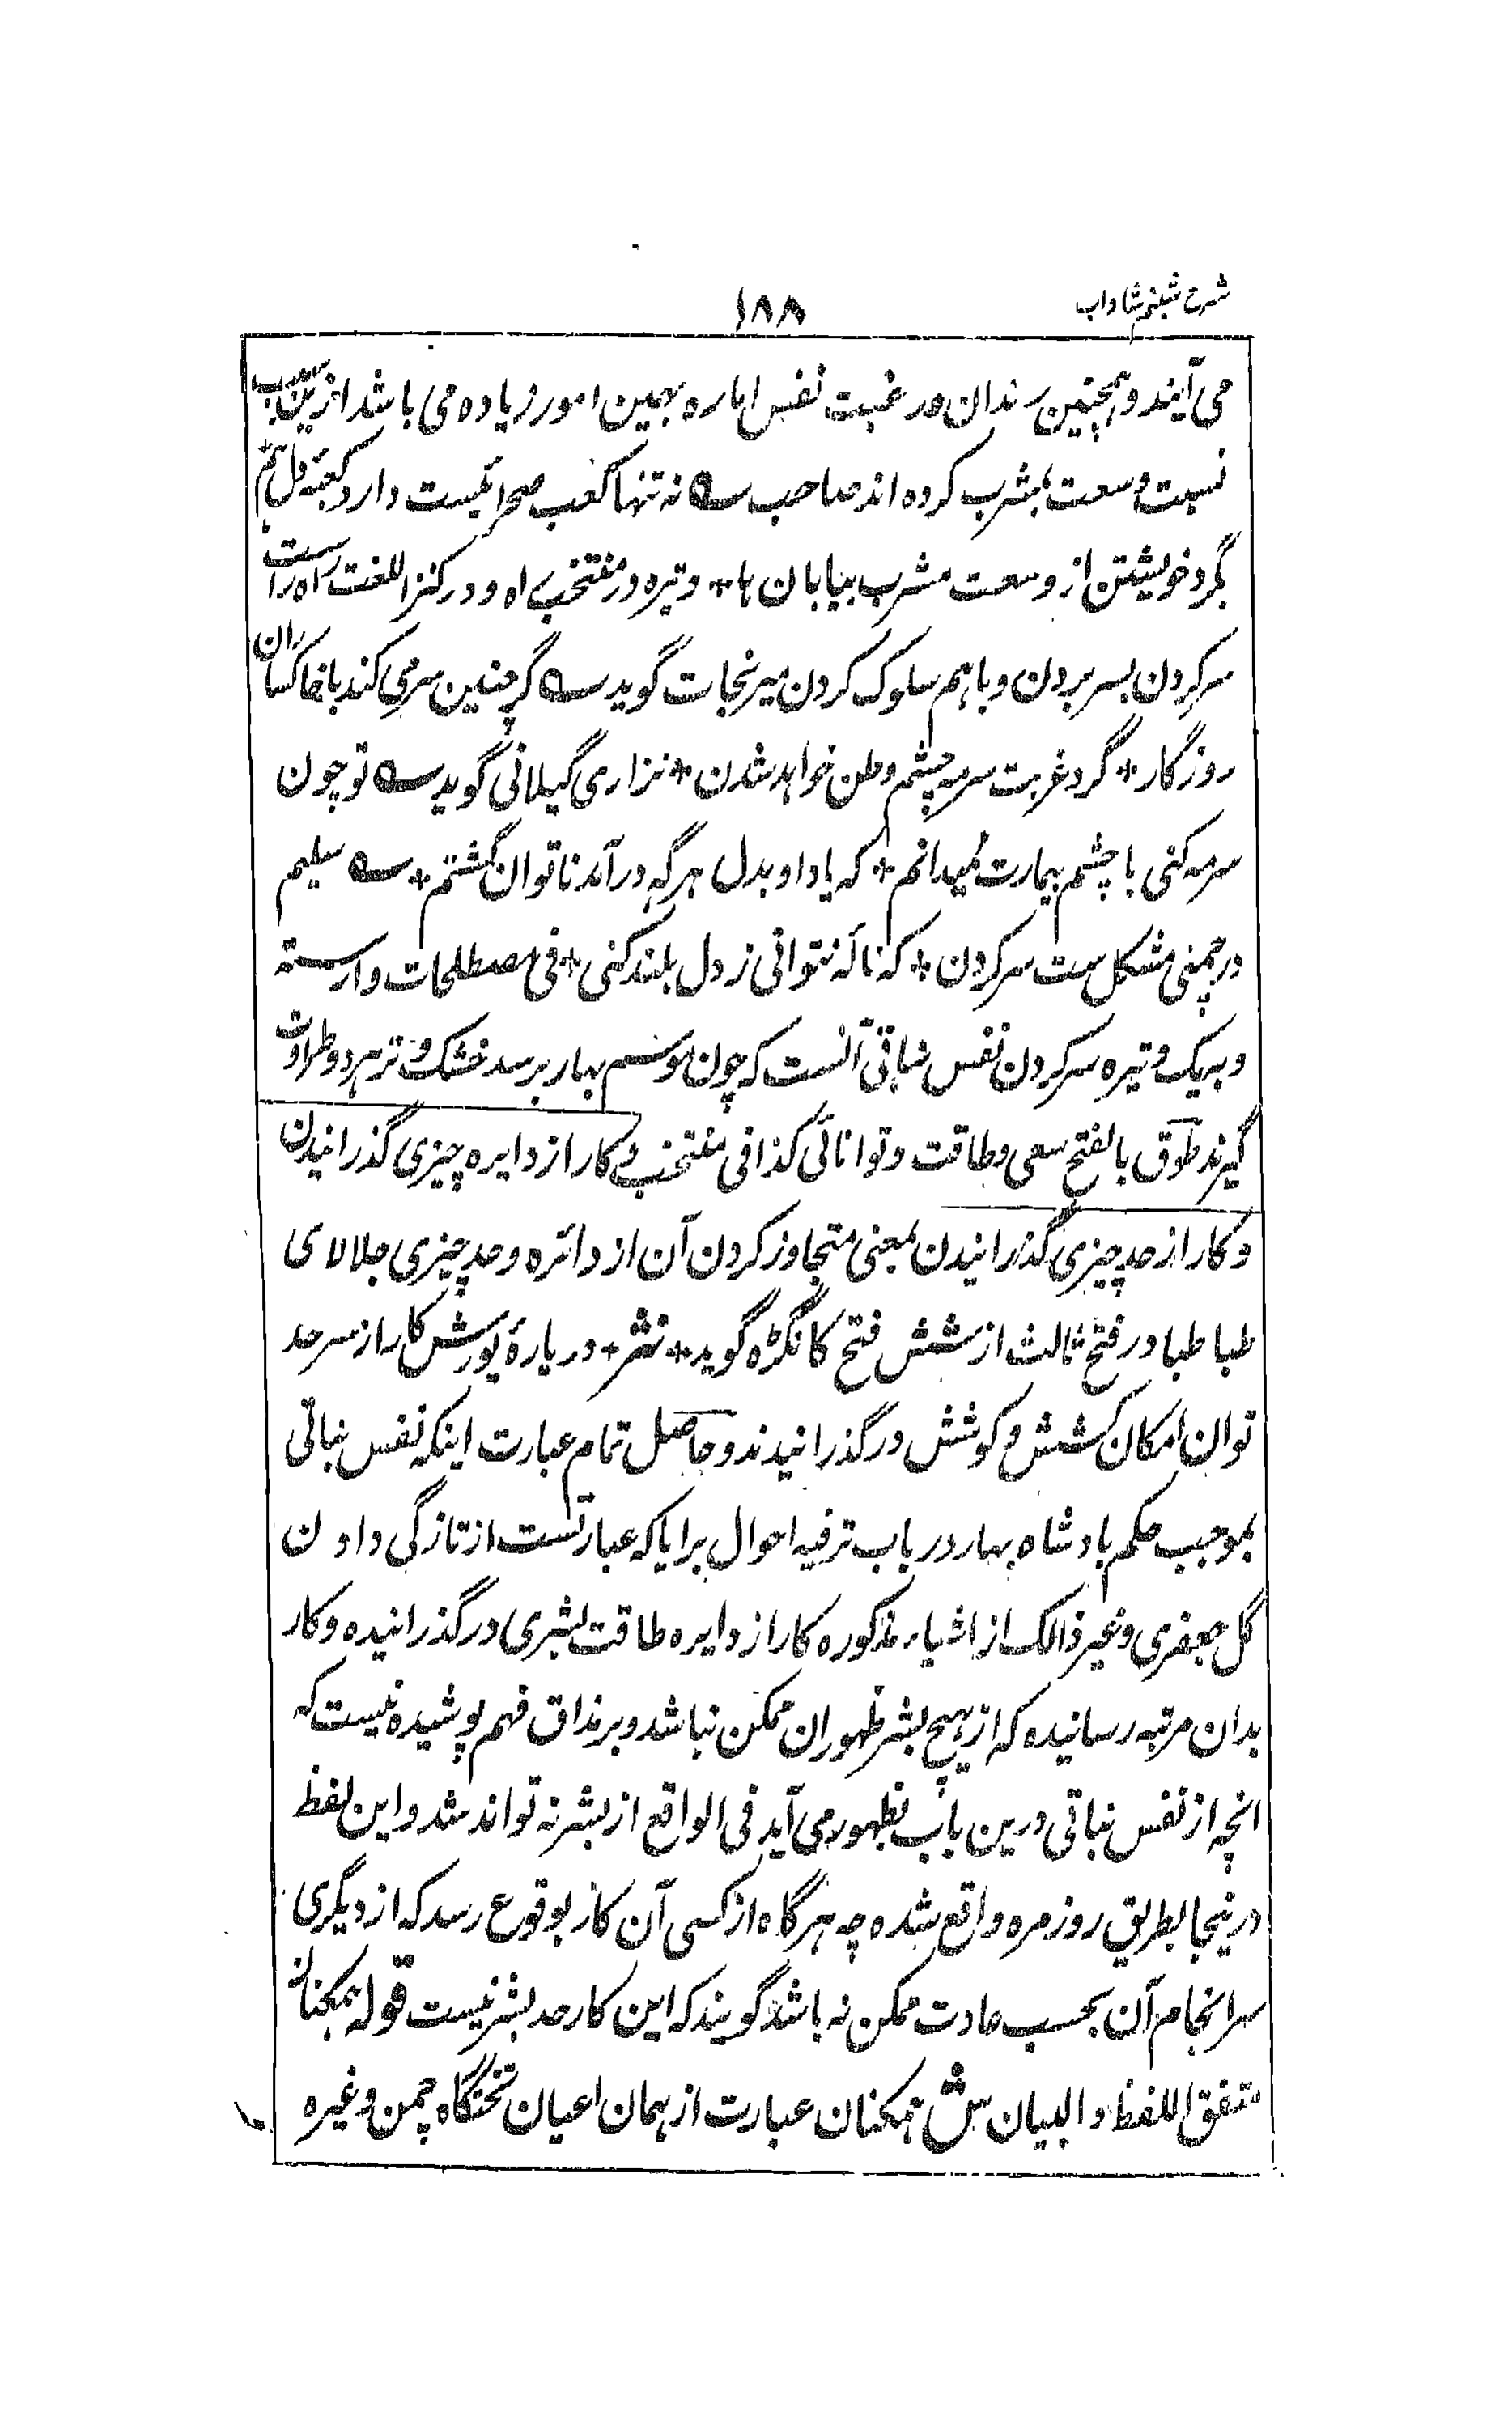 شرح شبنم شاداب
۱۸۸
می آیند و همچنین رندان در غبت نفس اماره بهمین امور زیاده می باشد ازین سبب
نسبت وسعت بمشرب کرده اند صاحب ؎ نه تنها کعب صحرائیست دارد کعبهٔ دل هم +
بگرد خویشتن از وسعت مشرب بیابان ها + وتیره در منتخب راه و در کنز اللغت راه راست
سر کردن بسر بردن و باهم سلوک کردن میر نجات گوید ؎ گر چنین سر می کند با خاکساران
روزگار + گرد غربت سرمه چشم وطن خواهد شدن + نزاری گیلانی گوید ؎ تو چون
سرمه کنی با چشم بیمارت نمیدانم + که یاد او بدل هر گه درآمد ناتوان گشتم + ؎ سلیم
در چمنی مشکل ست سر کردن + که ناله نتوانی ز دل بلند کنی + فی مصطلحات وارسته
و بیک وتیره سر کردن نفس نباتی آنست که چون موسم بهار برسد خشک و تر هر دو طراوت
گیرند طوق بالفتح سعی و طاقت و توانائی کذا فی منتخب و کار از دایره چیزی گذرانیدن
و کار از حد چیزی گذرانیدن بمعنی متجاوز کردن آن از دائره و حد چیزی جلالای
طباطبا در فتح ثالث از شش فتح کانگڑه گوید + نثر + در بارهٔ یورش کار از سرحد
توان امکان کشش و کوشش در گذرانیدند و حاصل تمام عبارت اینکه نفس نباتی
بموجب حکم بادشاه بهار در باب ترفیه احوال برایا که عبارتست از تازگی دادن
گل جعفری و غیر ذالک از اشیاء مذکوره کار از دایره طاقت بشری در گذرانیده و کار
بدان مرتبه رسانیده که از هیچ بشر ظهور ان ممکن نباشد و بر مذاق فهم پوشیده نیست که
انچه از نفس نباتی درین باب بظهور می آید فی الواقع از بشر نه تواند شد و این لفظ
درینجا بطریق روزمره واقع شده چه هرگاه از کسی آن کار بوقوع رسد که از دیگری
سرانجام آن بحسب عادت ممکن نه باشد گویند که این کار حد بشر نیست قوله همکنان
متفق اللفظ و البیان ش همکنان عبارت از همان اعیان تختگاه چمن و غیره